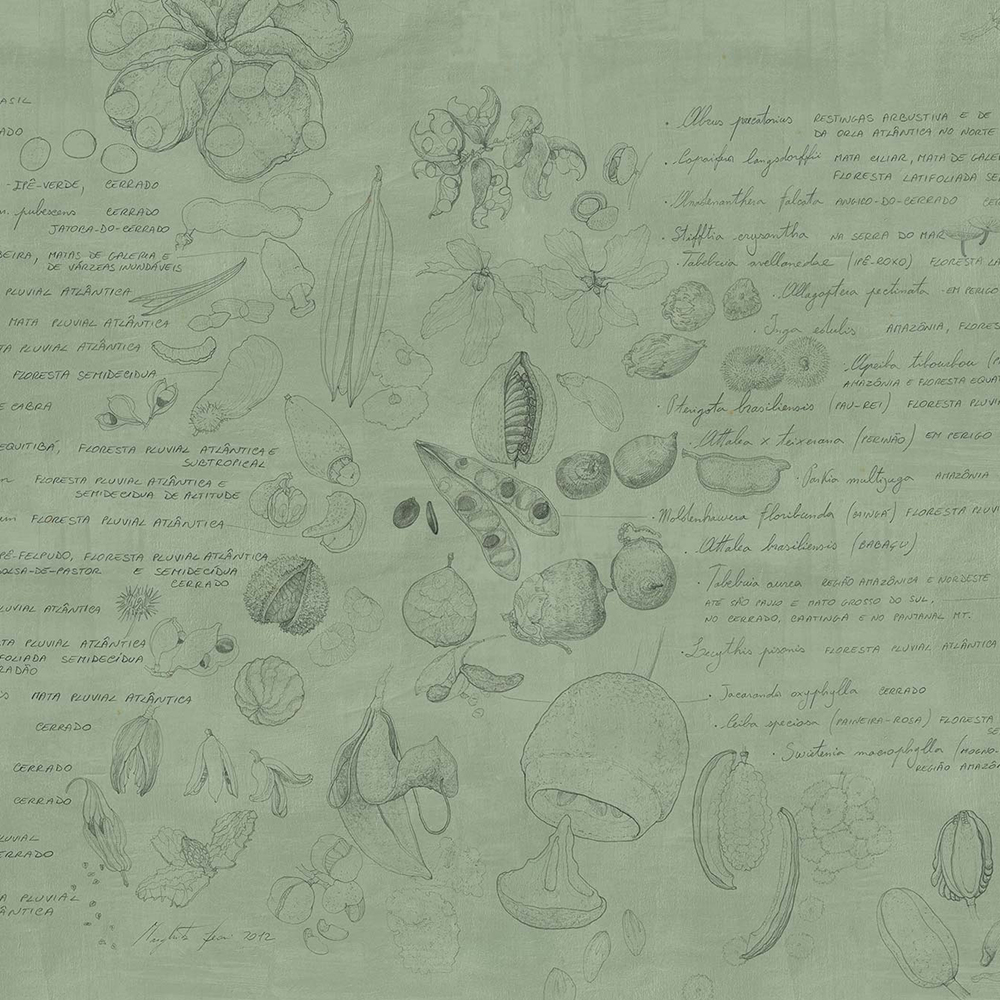 ASIL
ADO
-IPÊ-VERDE, CERRADO
n. pubescens CERRADO
JATOBA-DO-CERRADO
BEIRA, MATAS DE GALERIA E
DE VÁRZEAS INUNDÁVEIS
PLUVIAL ATLÂNTICA
MATA PLUVIAL ATLÂNTICA
TA PLUVIAL ATLÂNTICA
FLORESTA SEMIDECIDUA
E CABRA
EQUITIBÁ, FLORESTA PLUVIAL ATLÂNTICA E
SUBTROPICAL
FLORESTA PLUVIAL ATLÂNTICA E
SEMIDECIDUA DE ALTITUDE
um FLORESTA PLUVIAL ATLÂNTICA
PÊ-FELPUDO, FLORESTA PLUVIAL ATLÂNTICA
OLSA-DE-PASTOR E SEMIDECÍDUA
CERRADO
LUVIAL ATLÂNTICA
TA PLUVIAL ATLÂNTICA
FOLIADA SEMIDECÍDUA
RADÃO
S MATA PLUVIAL ATLÂNTICA
CERRADO
CERRADO
CERRADO
LUVIAL
ERRADO
A PLUVIAL
ÂNTICA
2012
• Abrus precatorius RESTINGAS ARBUSTIVA E DE
DA ORLA ATLÂNTICA NO NORTE
• Copaifera langsdorffii MATA CILIAR, MATA DE GALE
FLORESTA LATIFOLIADA SE
• Anadenanthera falcata ANGICO-DO-CERRADO CE
• Stifftia crysantha NA SERRA DO MAR
• Tabebuia avellanedae (IPÊ-ROXO) FLORESTA LA
• Allagoptera pectinata -EM PERIGO
• Inga edulis AMAZÔNIA, FLORES
• Apeiba tibourbou (
AMAZÔNIA E FLORESTA EQUAT
• Pterigota brasiliensis (PAU-REI) FLORESTA PLUVI
• Attalea x teixerana (PERINÃO) EM PERIGO
• Parkia multijuga AMAZÔNIA
• Moldenhawera floribunda (GINGÁ) FLORESTA PLUV
• Attalea brasiliensis (BABAÇU)
• Tabebuia aurea REGIÃO AMAZÔNICA E NORDESTE
ATÉ SÃO PAULO E MATO GROSSO DO SUL,
NO CERRADO, CAATINGA E NO PANTANAL MT.
• Lecythis pisonis FLORESTA PLUVIAL ATLÂNTICA
• Jacaranda oxyphylla CERRADO
• Ceiba speciosa (PAINEIRA-ROSA) FLORESTA
SE
• Swietenia macrophylla (MOGNO-
REGIÃO AMAZÔN